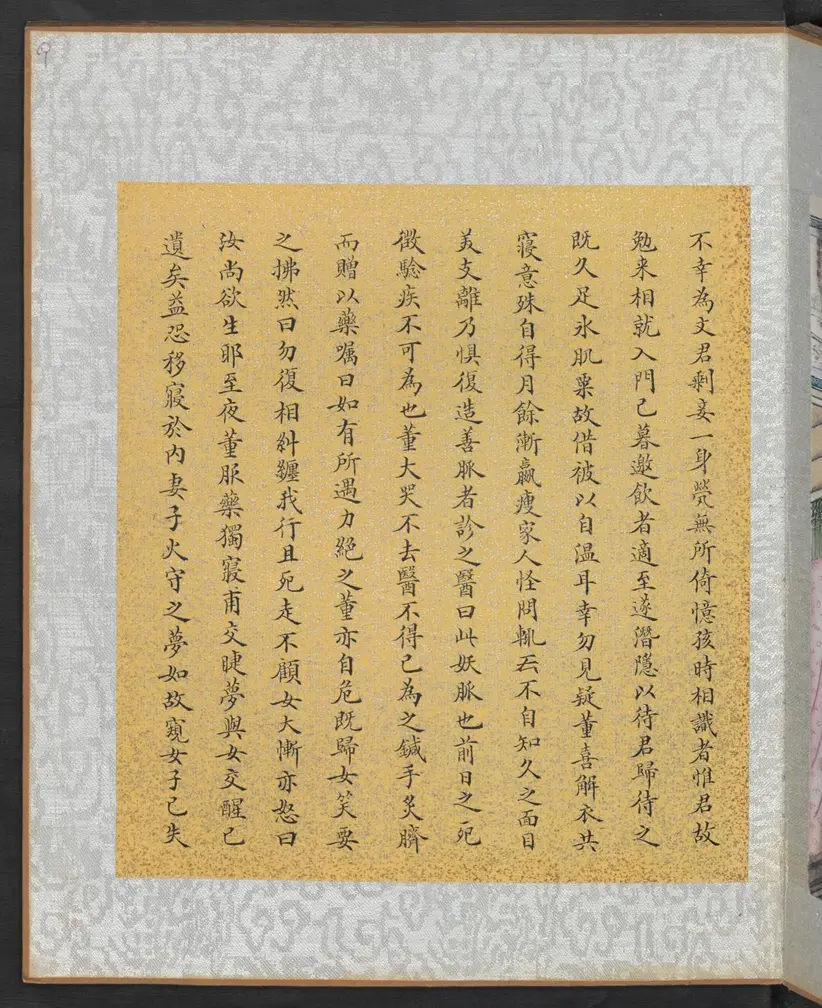 9
不幸為文君剩妾一身煢無所倚憶孩時相識者惟君故
勉来相就入門已暮邀飲者適至遂潛隱以待君歸待之
既久足氷肌粟故借被以自温耳幸勿見疑董喜解衣共
寢意殊自得月餘漸羸瘦家人怪問輒云不自知久之面目
美支離乃惧復造善脈者診之醫曰此妖脈也前日之死
徴驗疾不可為也董大哭不去醫不得已為之鍼手灸臍
而贈以藥嘱曰如有所遇力絕之董亦自危既歸女笑要
之拂然曰勿復相糾纒我行且死走不顧女大慚亦怒曰
汝尚欲生耶至夜董服藥獨寢甫交睫夢與女交醒已
遺矣益恐移寢於内妻子火守之夢如故窺女子已失